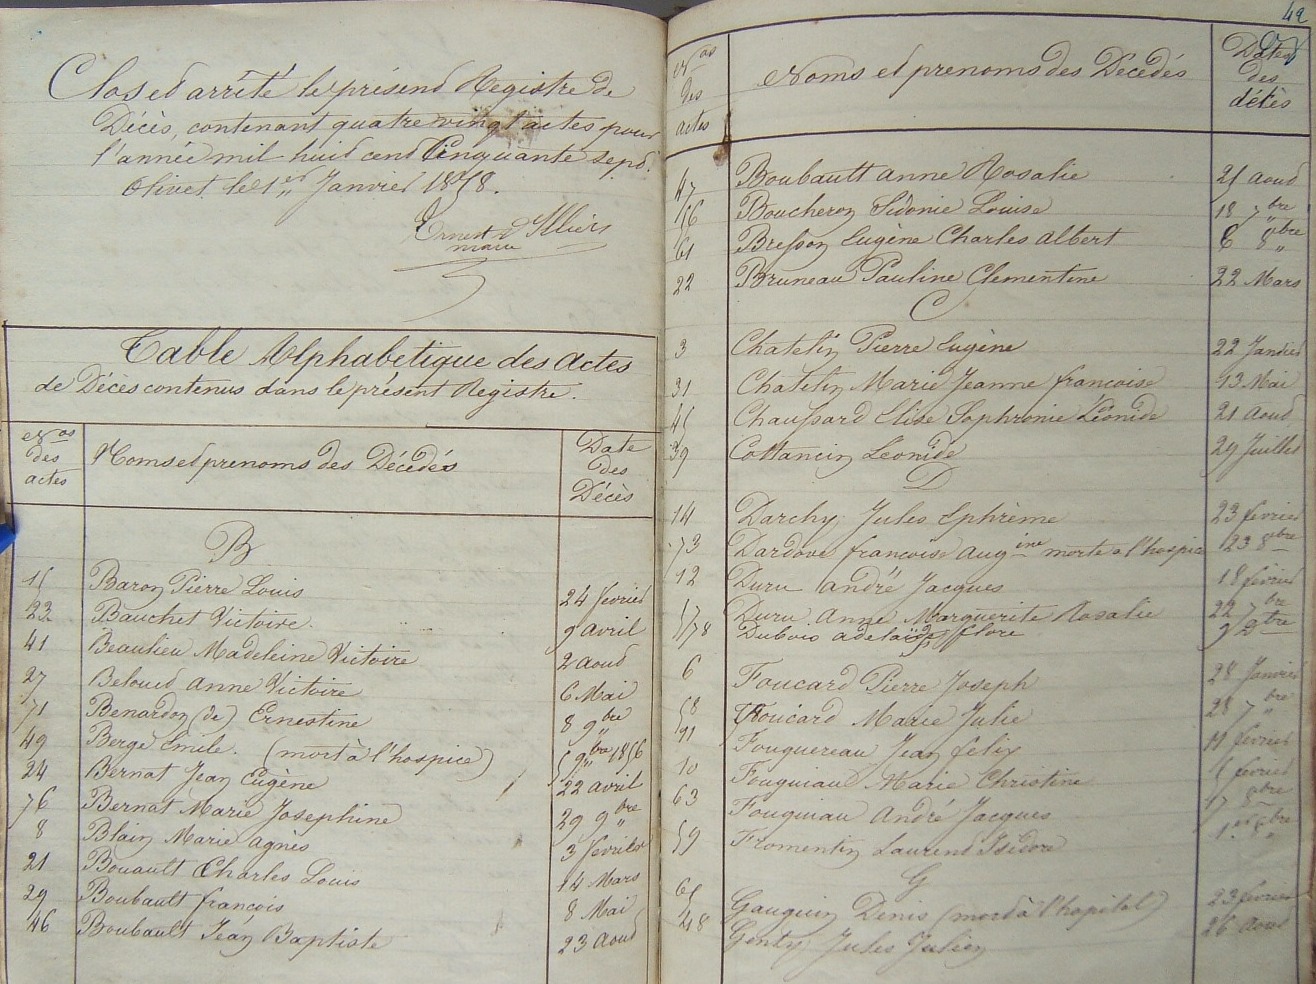 Clos et arrêté le présent Registre de
Décès, contenant quatre vingt actes pour
l'année mil huit cent Cinquante sept.
Olivet le 1er Janvier 1858.
Ernest d'Illiers
maire
Table Alphabetique des actes
de Décès contenus dans le présent Registre.
Nos des actes
Noms et prenoms des Décédés
Date des Décès
B
15 Baron Pierre Louis 24 fevrier
23 Bauchet Victoire. 9 avril
41 Beaulieu Madeleine Victoire 2 aout
27 Beloued anne Victoire 6 Mai
71 Benardon (de) Ernestine 8 9bre
49 Bergé Emile. (mort à l'hospice) 5 9bre 1856
24 Bernat Jean Eugène 22 avril
76 Bernat Marie Josephine 29 9bre
8 Blain Marie agnès 3 fevrier
21 Bouault Charles Louis 14 Mars
29 Boubault francois 8 Mai
46 Boubault Jean Baptiste 23 Aout
42
Nos des actes
Noms et prenoms des Décédés
Dates des décès
47 Boubault anne Rosalie 25 aout
56 Boucheron Sidonie Louise 18 7bre
61 Bresson Eugène Charles albert 6 8bre
22 Bruneau Pauline Clementine 22 Mars
C
3 Chatelin Pierre Eugène 22 Janvier
31 Chatelin Marie Jeanne francoise 13 Mai
45 Chaussard Elise Sophronie Léonide 21 aout
39 Cottancin Léonide 29 Juillet
D
14 Darchy Jules Ephrème 23 fevrier
73 Dardove francoise Augine morte a l'hospice 23 8bre
12 Duru andré Jacques 18 fevrier
57 Duru Anne Marguerite Rosalie 22 7bre
78 Dubois adelaïde flore 9 Xbre
6 Foucard Pierre Joseph 28 Janvier
58 Foucard Marie Julie 28 7bre
Fouquereau Jean felix 11 fevrier
10 Fouquiau Marie Christine 5 fevrier
63 Fouquiau André Jacques 17 8bre
59 Fromentin Laurent Isidore 1er 8bre
G
65 Gauguin Denis (mort à l'hopital) 23 fevrier
48 Genty Jules Julien 26 Aout